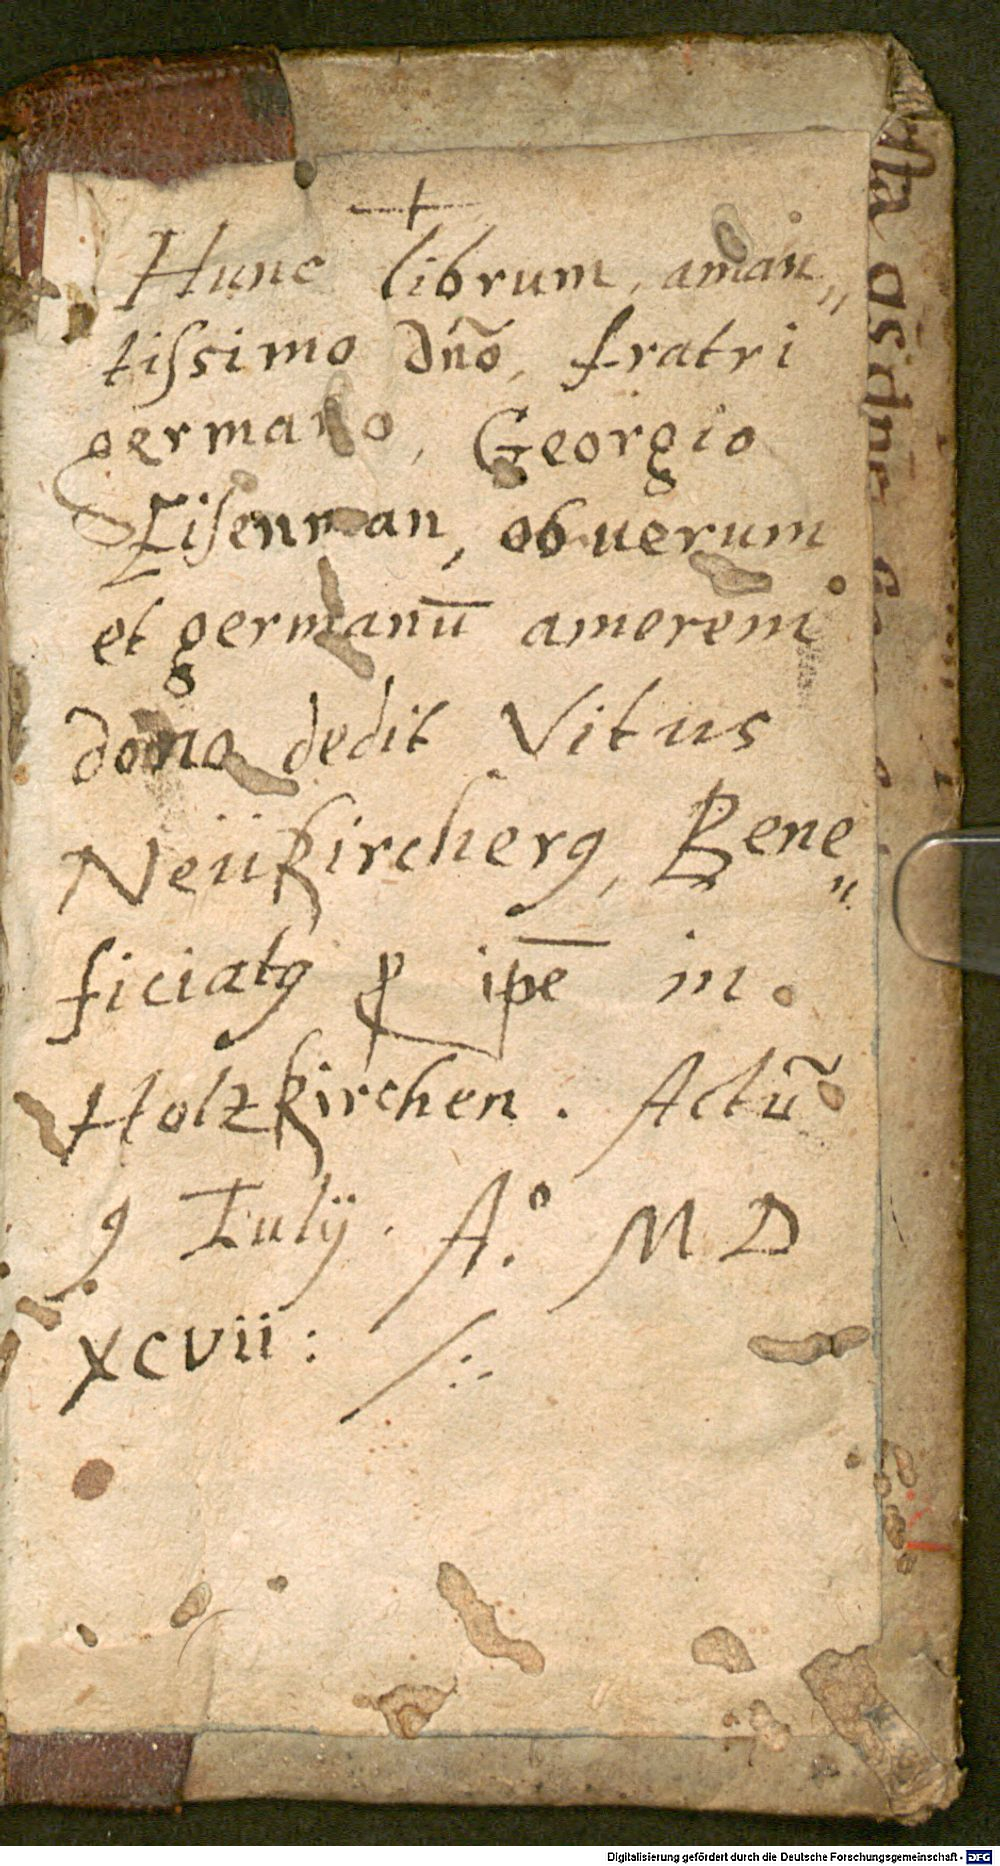 +
Hunc librum, aman„
tiſsimo dño, fratri
germano, Georgio
Eiſenman, ob uerum
et germanū amorem
dono dedit Vitus
Neükircherꝯ, Bene„
ficiatꝯ ꝓ ipē in
Holzkirchen. Actũ
9 Iulÿ. A.º M D
xcvii: /:-
Digitalisierung gefördert durch die Deutsche Forschungsgemeinschaft - DFG